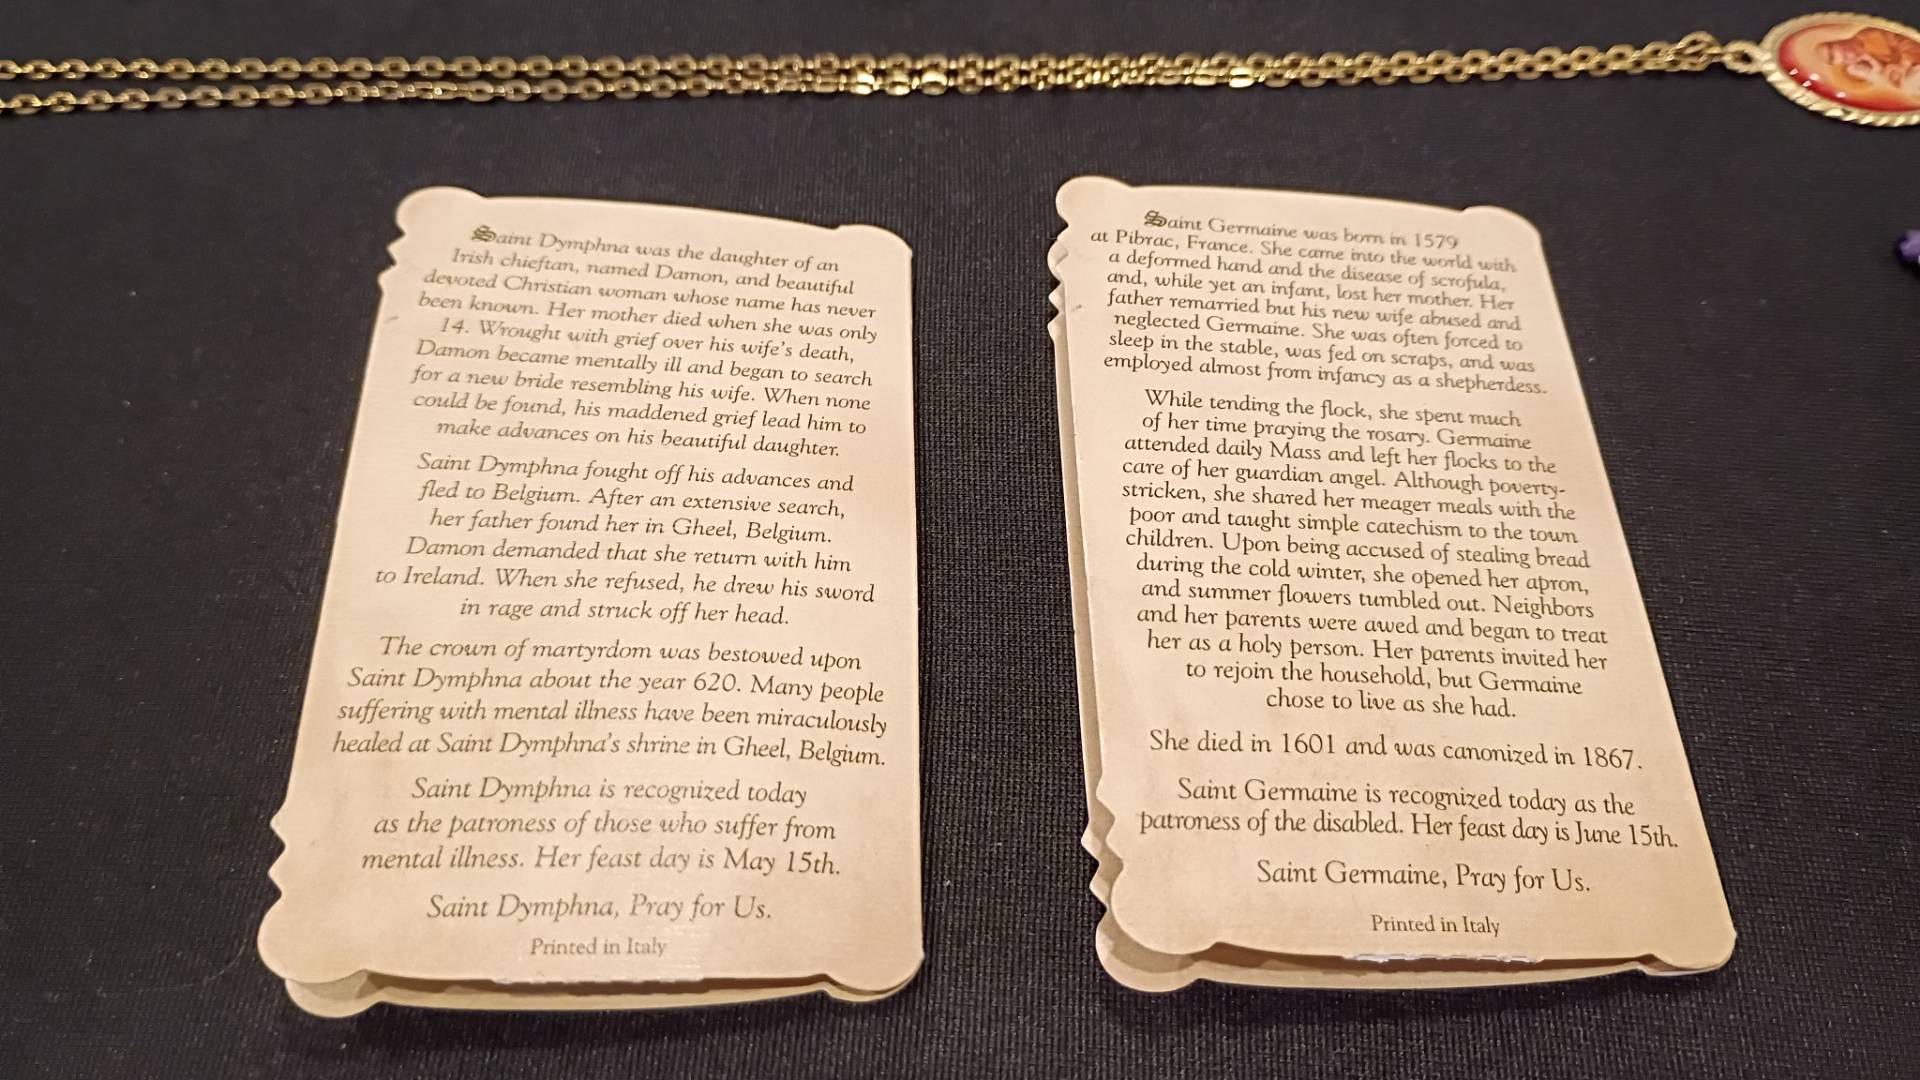 Saint Dymphna was the daughter of an
Irish chieftan, named Damon, and beautiful
devoted Christian woman whose name has never
been known. Her mother died when she was only
14. Wrought with grief over his wife's death,
Damon became mentally ill and began to search
for a new bride resembling his wife. When none
could be found, his maddened grief lead him to
make advances on his beautiful daughter.
Saint Dymphna fought off his advances and
fled to Belgium. After an extensive search,
her father found her in Gheel, Belgium.
Damon demanded that she return with him
to Ireland. When she refused, he drew his sword
in rage and struck off her head.
The crown of martyrdom was bestowed upon
Saint Dymphna about the year 620. Many people
suffering with mental illness have been miraculously
healed at Saint Dymphna's shrine in Gheel, Belgium.
Saint Dymphna is recognized today
as the patroness of those who suffer from
mental illness. Her feast day is May 15th.
Saint Dymphna, Pray for Us.
Printed in Italy
Saint Germaine was born in 1579
at Pibrac, France. She came into the world with
a deformed hand and the disease of scrofula,
and, while yet an infant, lost her mother. Her
father remarried but his new wife abused and
neglected Germaine. She was often forced to
sleep in the stable, was fed on scraps, and was
employed almost from infancy as a shepherdess.
While tending the flock, she spent much
of her time praying the rosary. Germaine
attended daily Mass and left her flocks to the
care of her guardian angel. Although poverty-
stricken, she shared her meager meals with the
poor and taught simple catechism to the town
children. Upon being accused of stealing bread
during the cold winter, she opened her apron,
and summer flowers tumbled out. Neighbors
and her parents were awed and began to treat
her as a holy person. Her parents invited her
to rejoin the household, but Germaine
chose to live as she had.
She died in 1601 and was canonized in 1867.
Saint Germaine is recognized today as the
patroness of the disabled. Her feast day is June 15th.
Saint Germaine, Pray for Us.
Printed in Italy